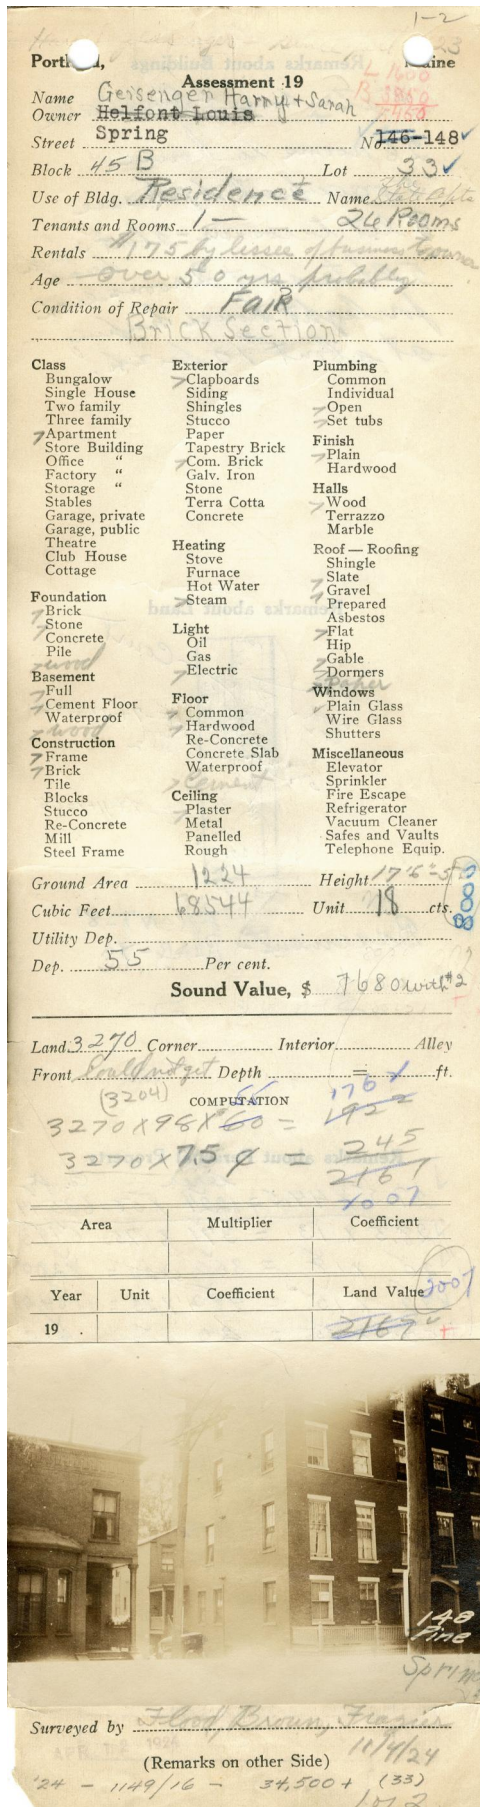 1-2
Portland, Maine
L 1600
B 3850
Assessment 19
Name Geisenger Harry + Sarah
Owner Helfont Louis
Street Spring No 146-148
Block 45 B Lot 33
Use of Bldg. Residence Name
Tenants and Rooms 1- 26 Rooms
Rentals $175 by lessee of business to owner
Age over 50 yrs probably
Condition of Repair FAIR
Brick Section
Class
Bungalow
Single House
Two family
Three family
Apartment
Store Building
Office "
Factory "
Storage "
Stables
Garage, private
Garage, public
Theatre
Club House
Cottage
Foundation
Brick
Stone
Concrete
Pile
wood
Basement
Full
Cement Floor
Waterproof
wood
Construction
Frame
Brick
Tile
Blocks
Stucco
Re-Concrete
Mill
Steel Frame
Exterior
Clapboards
Siding
Shingles
Stucco
Paper
Tapestry Brick
Com. Brick
Galv. Iron
Stone
Terra Cotta
Concrete
Heating
Stove
Furnace
Hot Water
Steam
Light
Oil
Gas
Electric
Floor
Common
Hardwood
Re-Concrete
Concrete Slab
Waterproof
Cement
Ceiling
Plaster
Metal
Panelled
Rough
Plumbing
Common
Individual
Open
Set tubs
Finish
Plain
Hardwood
Halls
Wood
Terrazzo
Marble
Roof — Roofing
Shingle
Slate
Gravel
Prepared
Asbestos
Flat
Hip
Gable
Dormers
Paper
Windows
Plain Glass
Wire Glass
Shutters
Miscellaneous
Elevator
Sprinkler
Fire Escape
Refrigerator
Vacuum Cleaner
Safes and Vaults
Telephone Equip.
Ground Area 1224 Height
Cubic Feet 68544 Unit 18 cts.
8000
Utility Dep.
Dep. 55 Per cent.
Sound Value, $ 7680 with #2
Land 3270 Corner Interior Alley
Front Could not get Depth = ft.
(3204) COMPUTATION 1762
3270 X 98 X 60 = 1922
3270 X 7.5 ¢ = 245
2167
2007
Area Multiplier Coefficient
Year Unit Coefficient Land Value 2007
19 . 2167
148
Pine
Spring
Surveyed by Flood, Brown, Frazier
1926
11/4/24
(Remarks on other Side)
'24 - 1149/16 - 34,500 + (33)
Lot 2